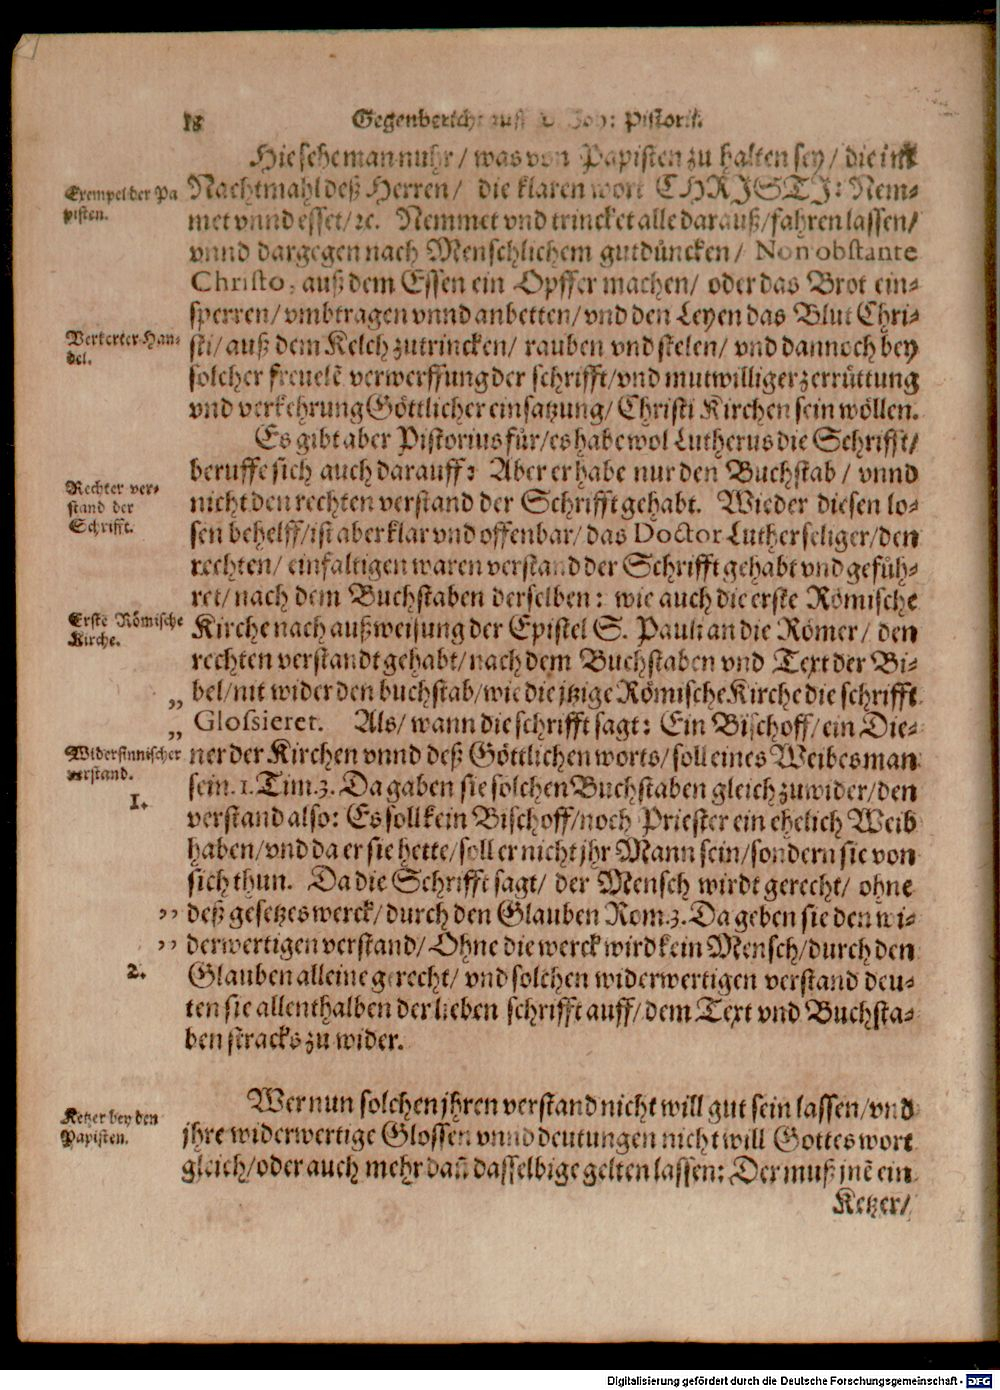 18 Gegenbericht auff D. Joh: Pistorii.
Hie sehe man nuhr / was von Papisten zu halten sey / die im
Exempel der Pa
pisten.
Nachtmahl deß Herren / die klaren wort CHRISTI: Nem-
met vnnd esset / ꝛc. Nemmet vnd trincket alle darauß / fahren lassen /
vnnd dargegen nach Menschlichem gutdůncken / Non obstante
Christo, auß dem Essen ein Opffer machen / oder das Brot ein-
sperren / vmbtragen vnnd anbetten / vnd den Leyen das Blut Chri-
Verkerter Han-
del.
sti / auß dem Kelch zutrincken / rauben vnd stelen / vnd dannoch bey
solcher freuelẽ verwerffung der schrifft / vnd mutwilliger zerrůttung
vnd verkehrung Göttlicher einsatzung / Christi Kirchen sein wöllen.
Es gibt aber Pistorius fůr / es habe wol Lutherus die Schrifft /
beruffe sich auch darauff: Aber er habe nur den Buchstab / vnnd
Rechter ver-
stand der
Schrifft.
nicht den rechten verstand der Schrifft gehabt. Wieder diesen lo-
sen behelff / ist aber klar vnd offenbar / das Doctor Luther seliger / den
rechten / einfaltigen waren verstand der Schrifft gehabt vnd gefůh-
ret / nach dem Buchstaben derselben: wie auch die erste Römische
Erste Römische
Kirche.
Kirche nach außweisung der Epistel S. Pauli an die Römer / den
rechten verstandt gehabt / nach dem Buchstaben vnd Text der Bi-
„ bel / nit wider den buchstab / wie die jtzige Römische Kirche die schrifft
„ Glossieret. Als / wann die schrifft sagt: Ein Bischoff / ein Die-
Widersinnischer
verstand.
1.
ner der Kirchen vnnd deß Göttlichen worts / soll eines Weibes man
sein. 1. Tim. 3. Da gaben sie solchen Buchstaben gleich zuwider / den
verstand also: Es soll kein Bischoff / noch Priester ein ehelich Weib
haben / vnd da er sie hette / soll er nicht jhr Mann sein / sondern sie von
sich thun. Da die Schrifft sagt / der Mensch wirdt gerecht / ohne
„ deß gesetzes werck / durch den Glauben Rom. 3. Da geben sie den wi-
„ derwertigen verstand / Ohne die werck wird kein Mensch / durch den
2.
Glauben alleine gerecht / vnd solchen widerwertigen verstand deu-
ten sie allenthalben der lieben schrifft auff / dem Text vnd Buchsta-
ben stracks zu wider.
Wer nun solchen jhren verstand nicht will gut sein lassen / vnd
Ketzer bey den
Papisten.
jhre widerwertige Glossen vnnd deutungen nicht will Gottes wort
gleich / oder auch mehr dañ dasselbige gelten lassen: Der muß jnẽ ein
Ketzer /
Digitalisierung gefördert durch die Deutsche Forschungsgemeinschaft - DFG